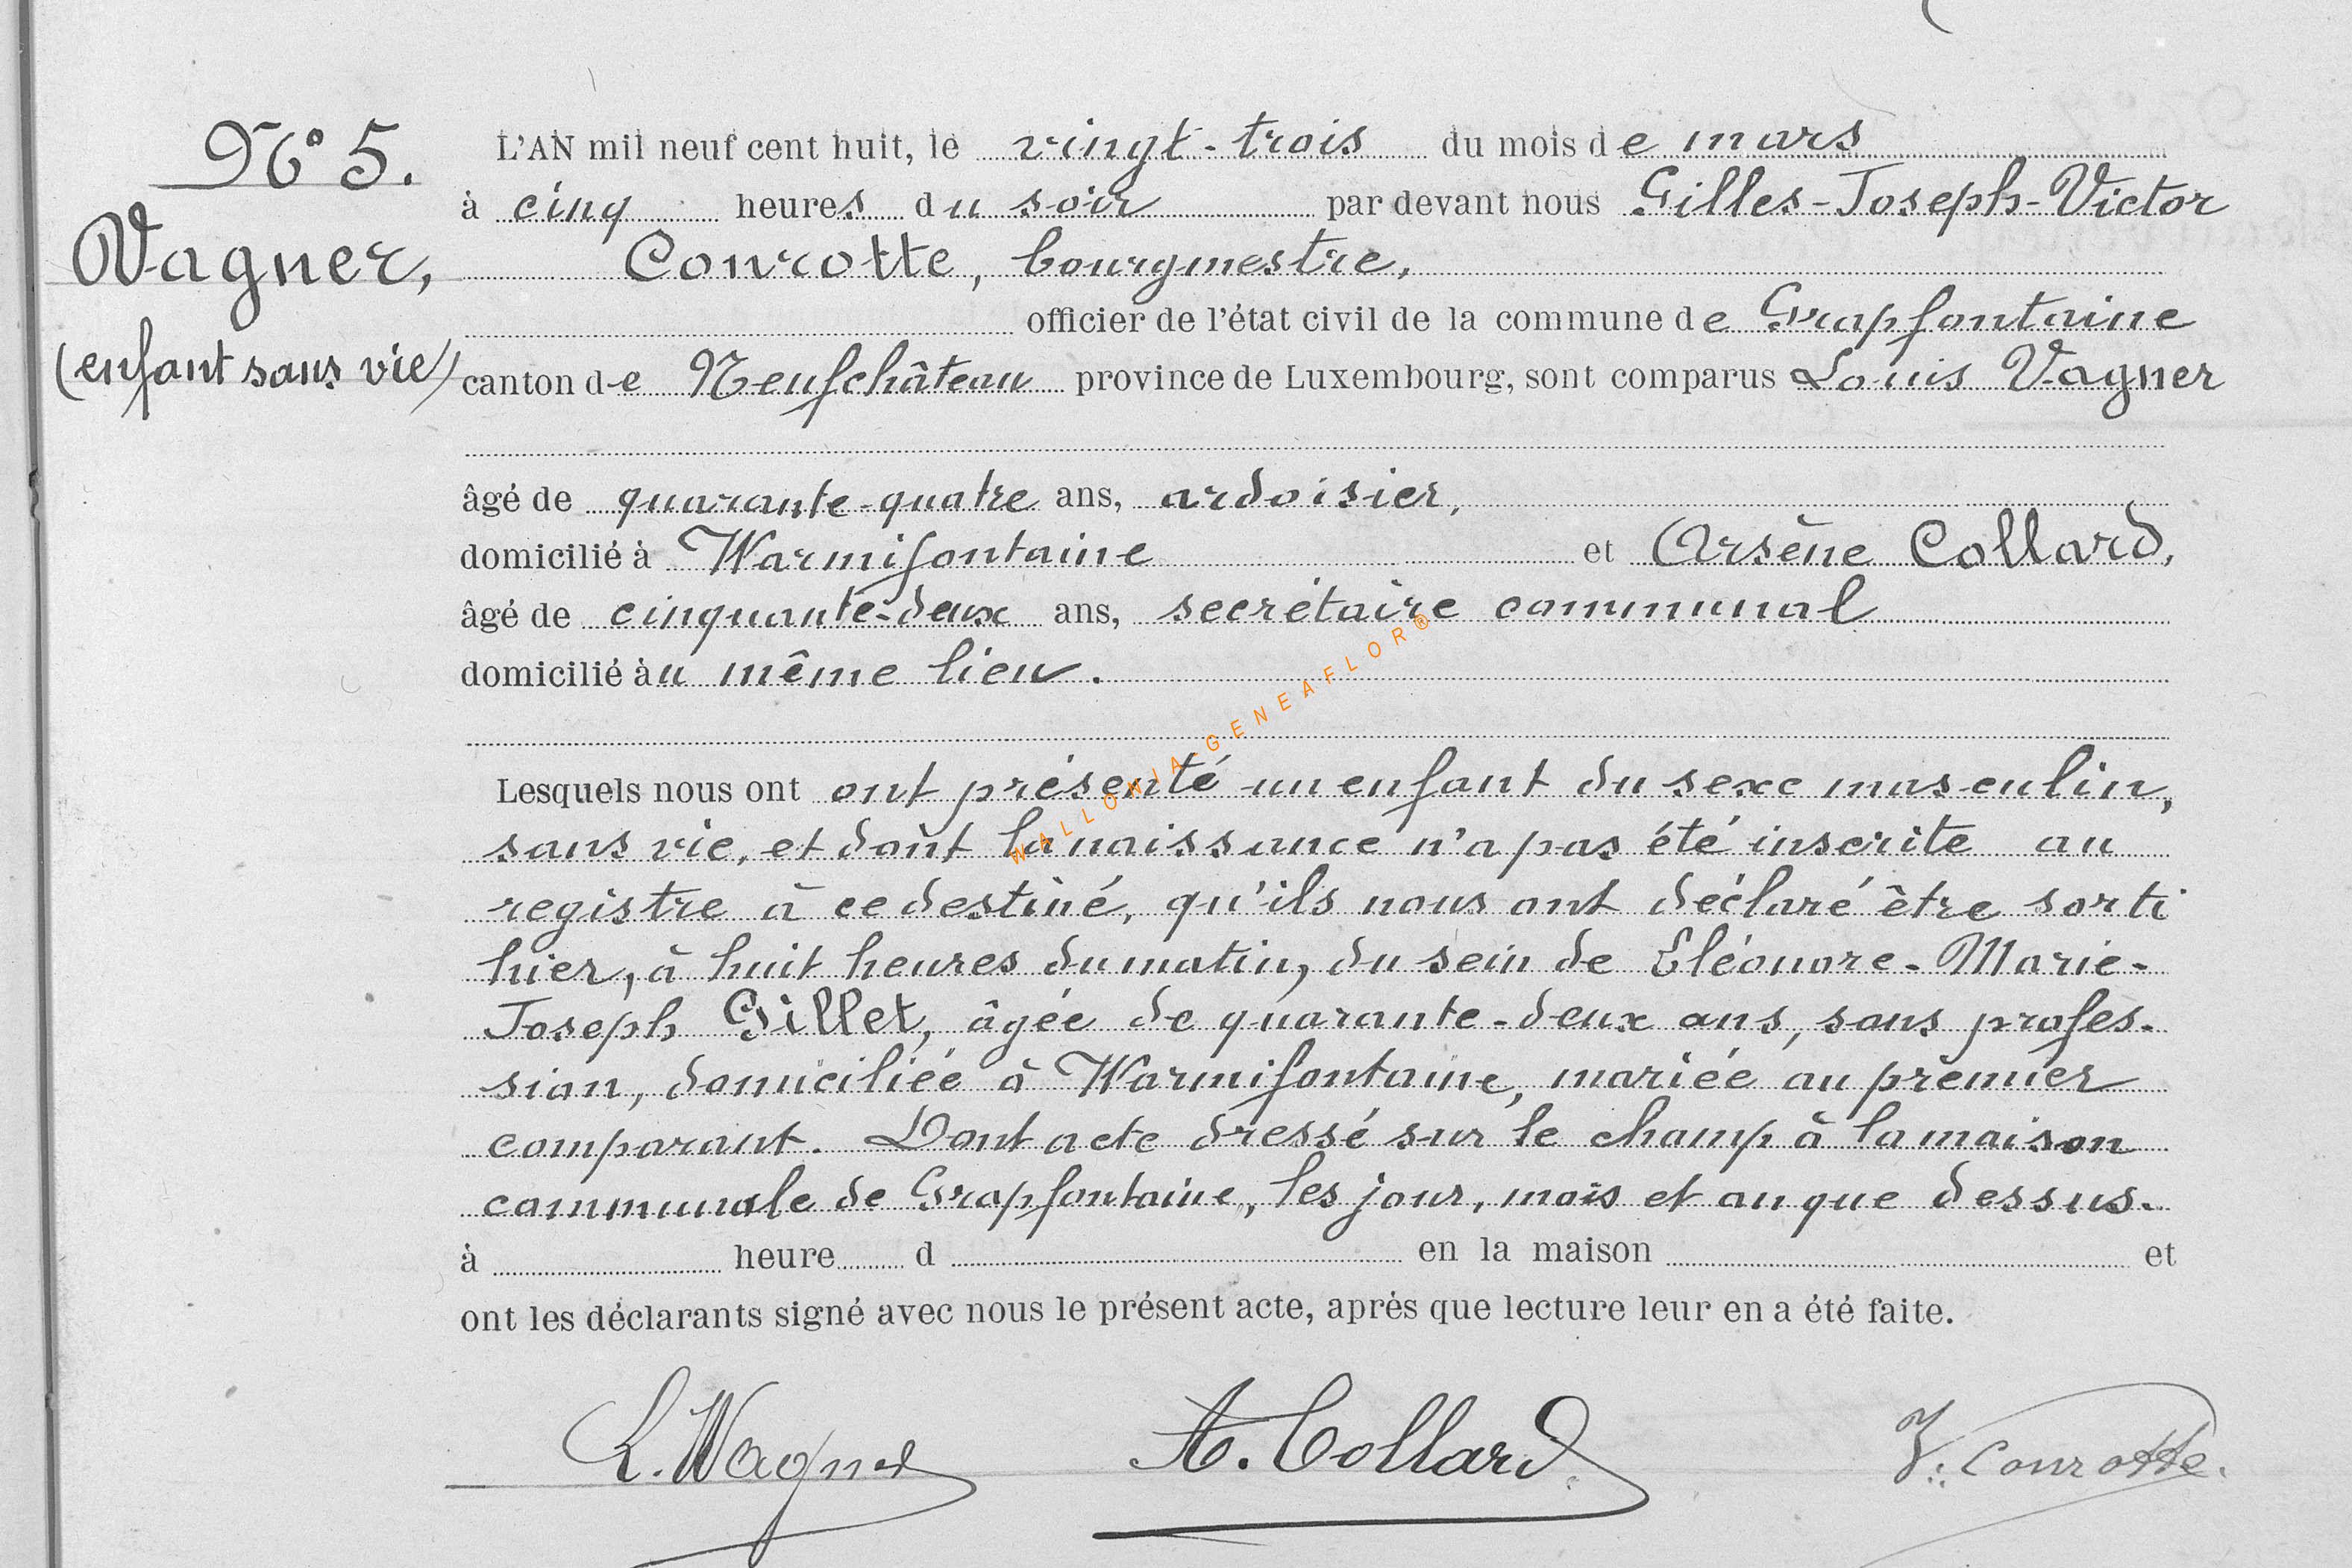 N° 5.
Vagner,
(enfant sans vie)
L'AN mil neuf cent huit, le vingt-trois du mois de mars
à cinq heures du soir par devant nous Gilles-Joseph-Victor
Conrotte, bourgmestre,
officier de l'état civil de la commune de Grapfontaine
canton de Neufchâteau province de Luxembourg, sont comparus Louis Vagner
âgé de quarante-quatre ans, ardoisier,
domicilié à Warmifontaine et Arsène Collard,
âgé de cinquante-deux ans, secrétaire communal
domicilié au même lieu.
Lesquels nous ont ont présenté un enfant du sexe masculin,
sans vie, et dont la naissance n'a pas été inscrite au
registre à ce destiné, qu'ils nous ont déclaré être sorti
hier, à huit heures du matin, du sein de Eléonore-Marie-
Joseph Gillet, âgée de quarante-deux ans, sans profes-
sion, domiciliée à Warmifontaine, mariée au premier
comparant. Dont acte dressé sur le champ à la maison
communale de Grapfontaine, les jour, mois et an que dessus.
à heure d en la maison et
ont les déclarants signé avec nous le présent acte, après que lecture leur en a été faite.
L. Wagner A. Collard V. Conrotte.
WALLONIA-GENEAFLOR®